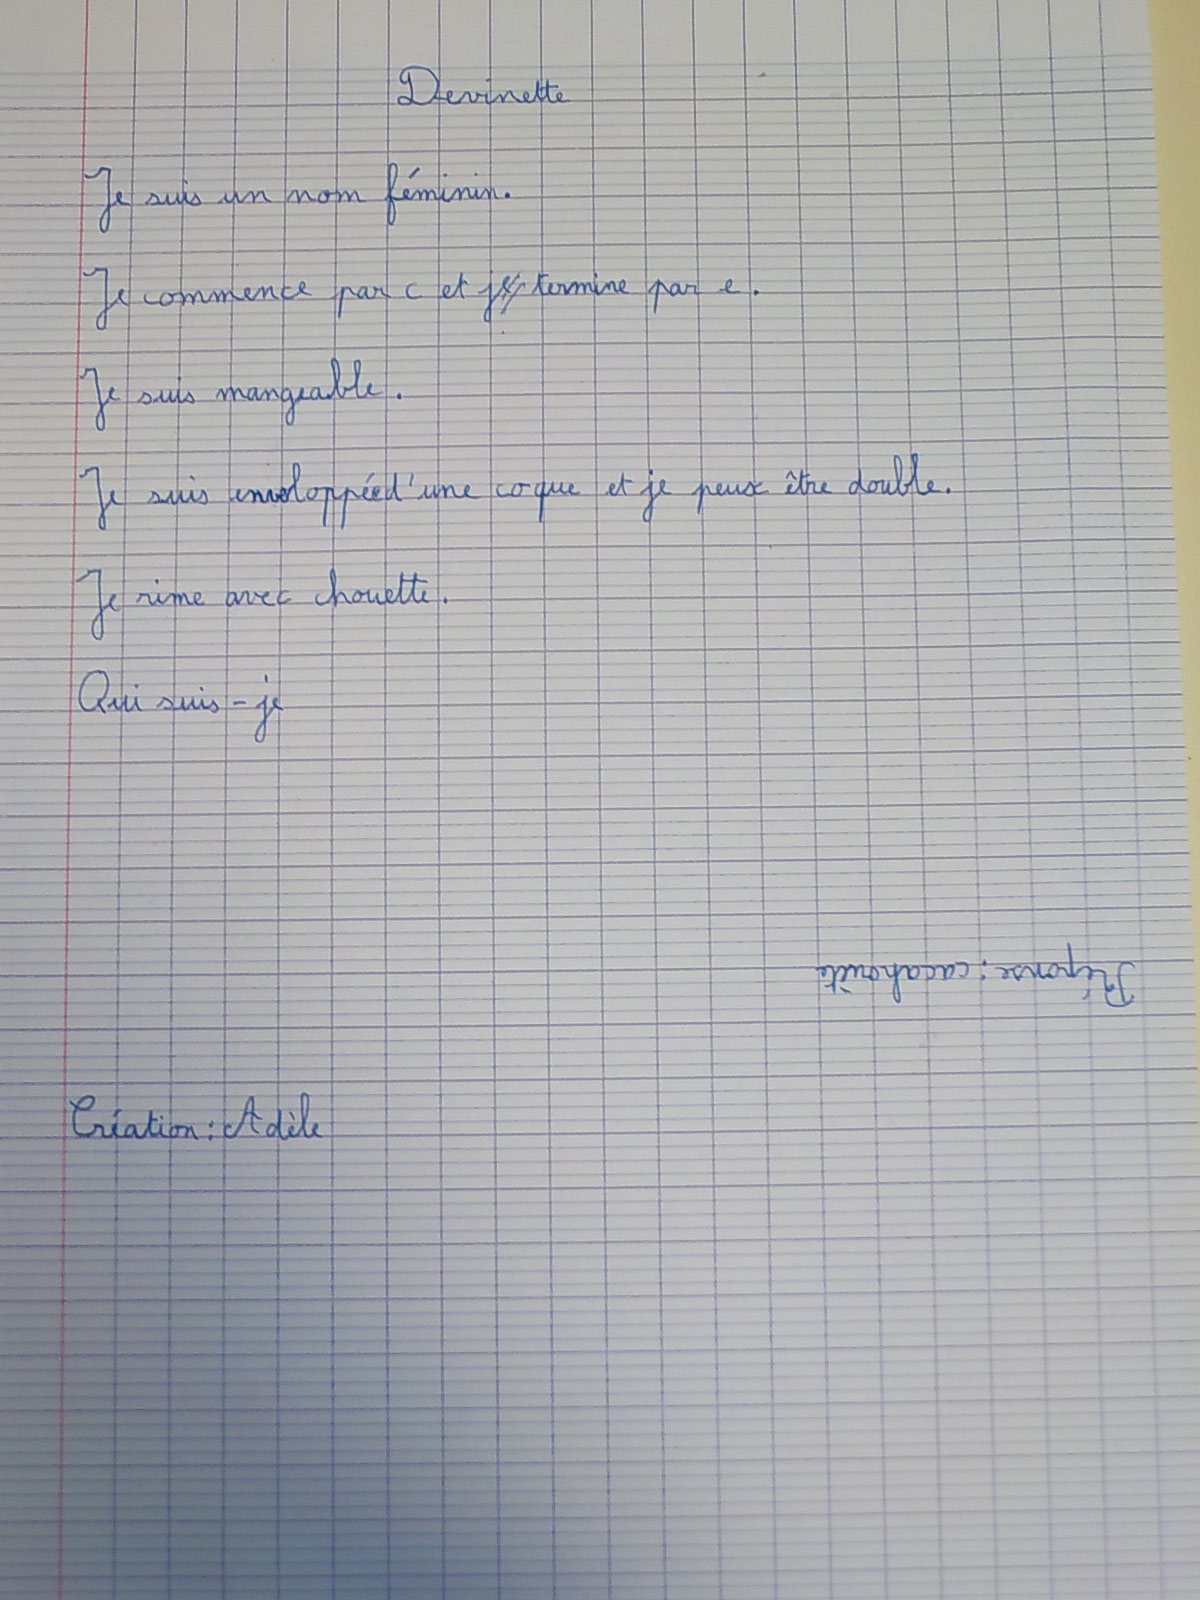 Devinette
Je suis un nom féminin.
Je commence par c et je termine par e.
Je suis mangeable.
Je suis enveloppée d'une coque et je peux être double.
Je rime avec chouette.
Qui suis-je
Réponse : cacahouète
Création : Adèle